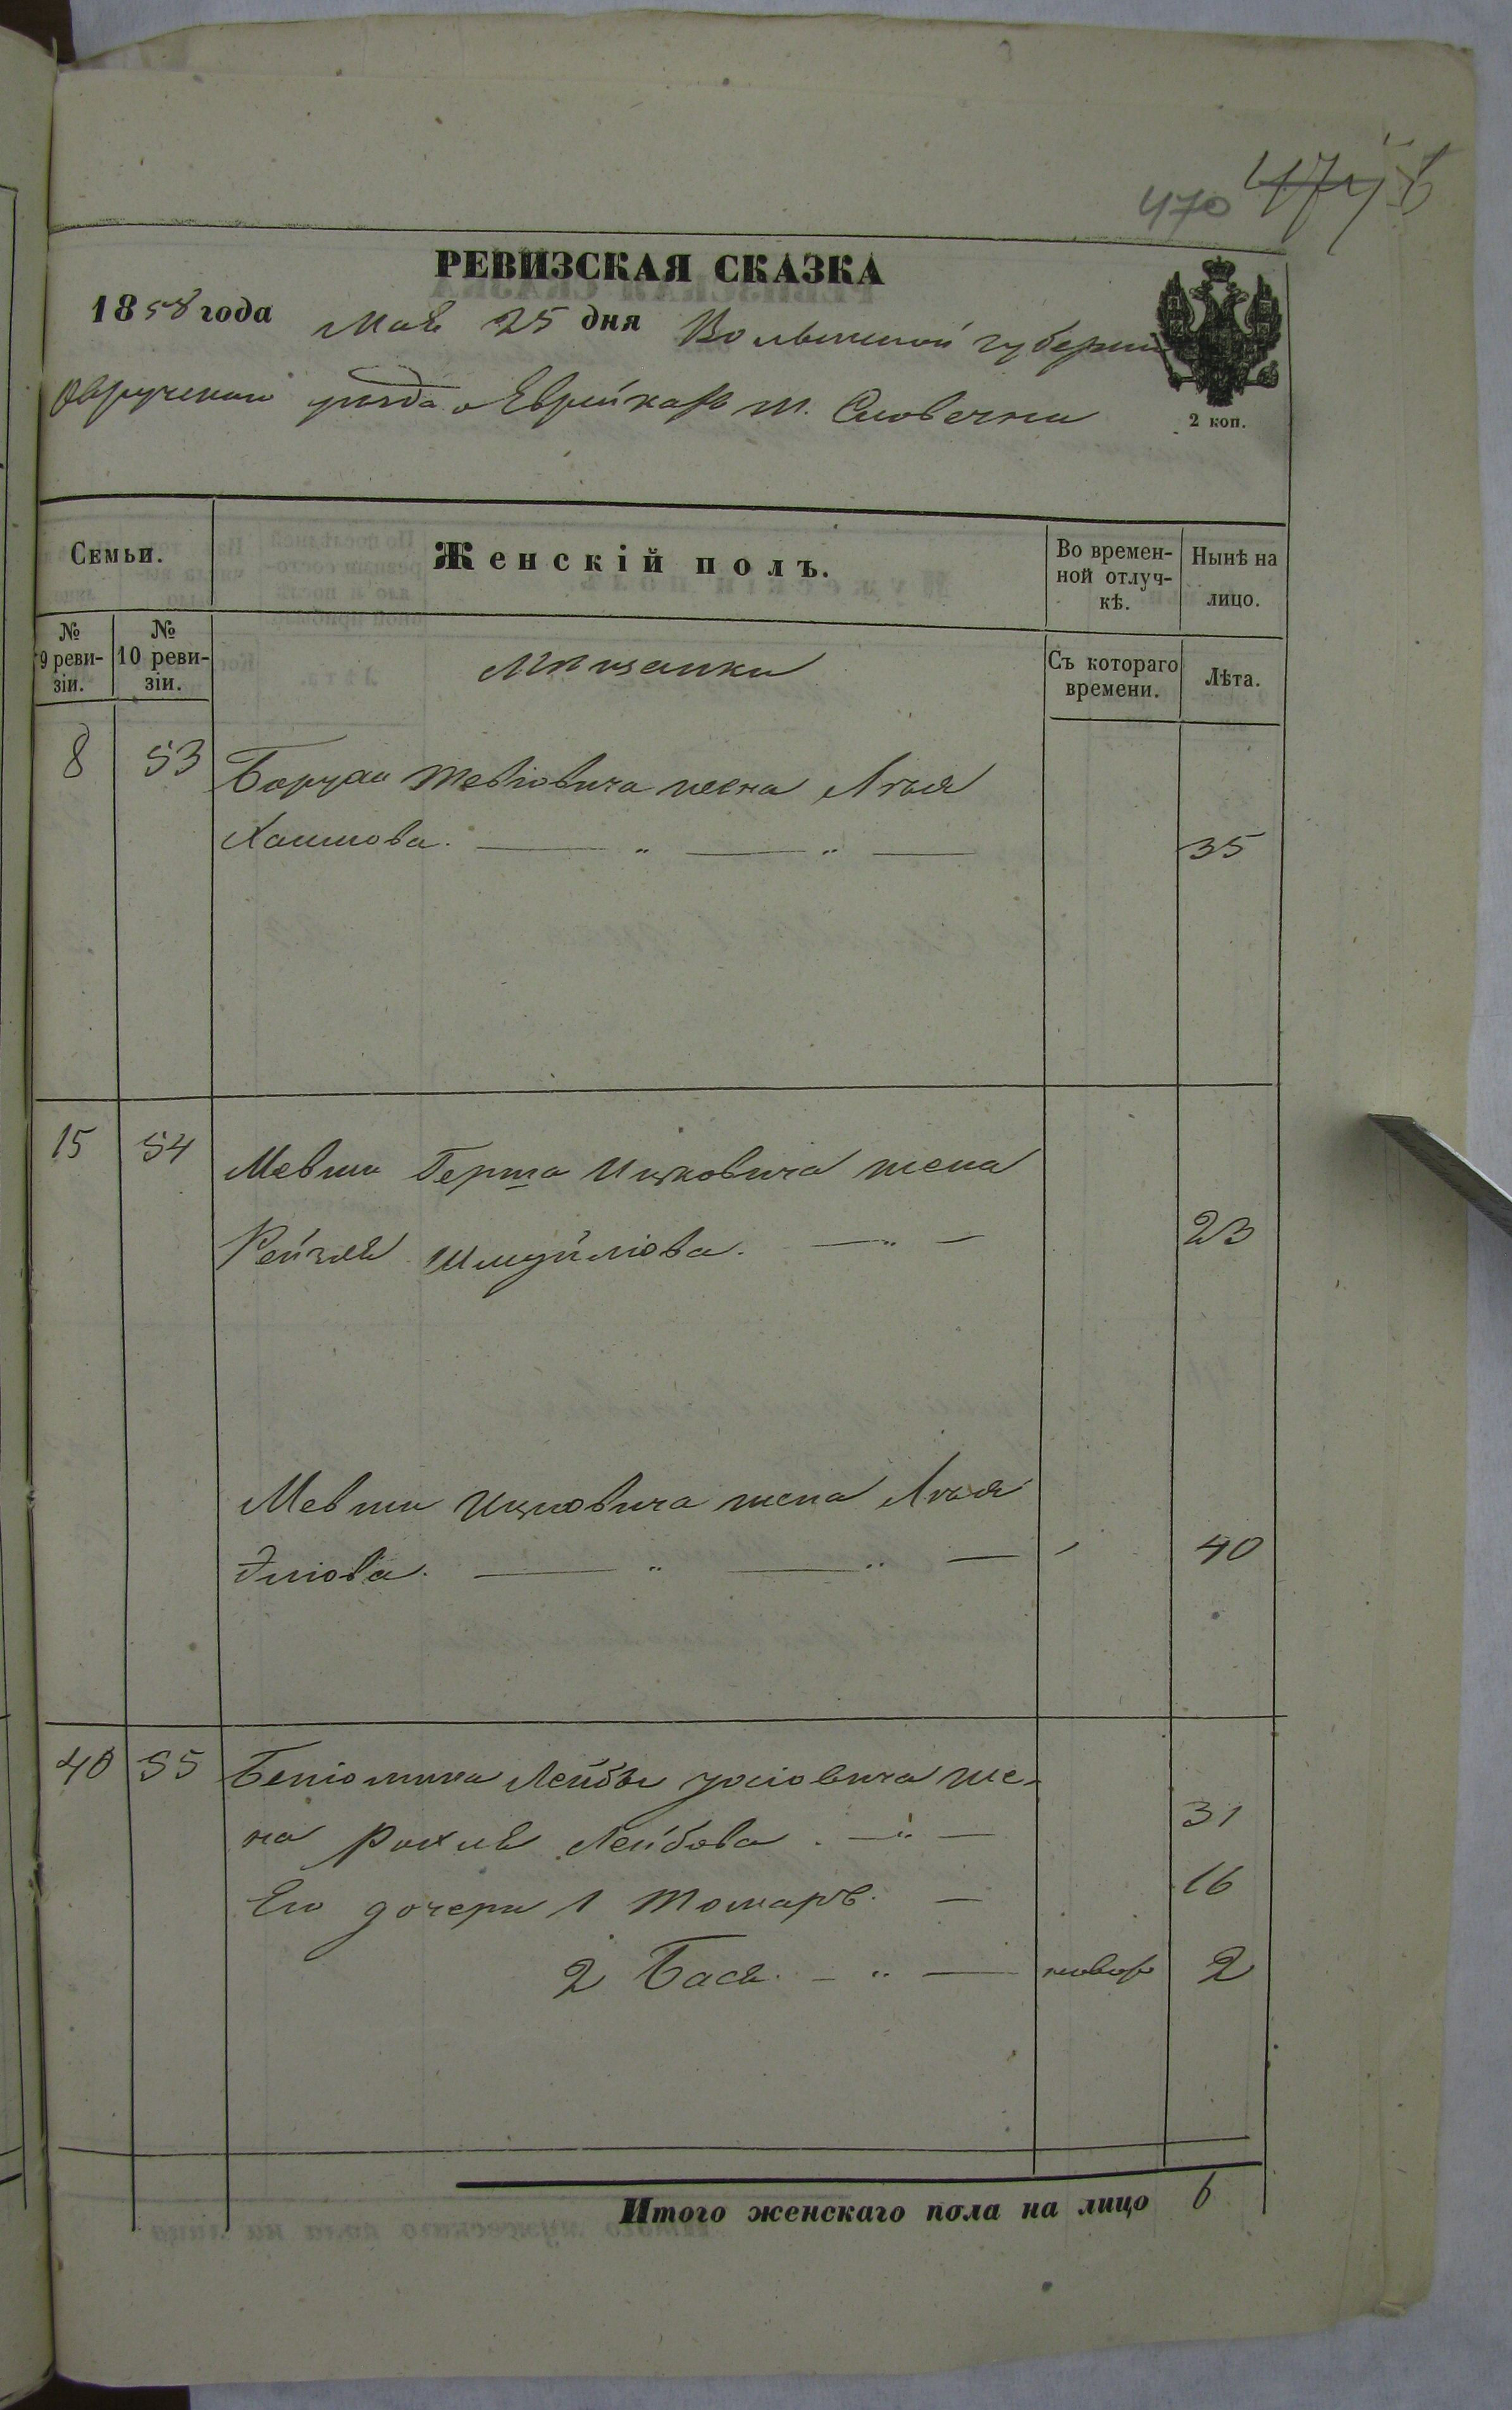 470 471
РЕВИЗСКАЯ СКАЗКА
1858 года Мая 25 дня Волынской губернии
Овручскаго уѣзда о Еврейкахъ м. Словечни
2 коп.
Семьи. Женскій полъ. Во времен-ной отлуч-кѣ. Нынѣ на лицо.
№ 9 реви-зіи. № 10 реви-зіи. Мѣщанки Съ котораго времени. Лѣта.
8 53 Тевіовича жена Лея
Хаимова. 35
15 54 Мевши Герша Ицковича жена
Рейзля Шмуйліова. 23
Мевши Ицковича жена Лея
Эліова. 40
40 55 Беніомина Лейбы Іосіовича же-
на Рохля Лейбова. 31
Его дочери 1 Томаръ. 16
2 Бася. новор 2
Итого женскаго пола на лицо 6